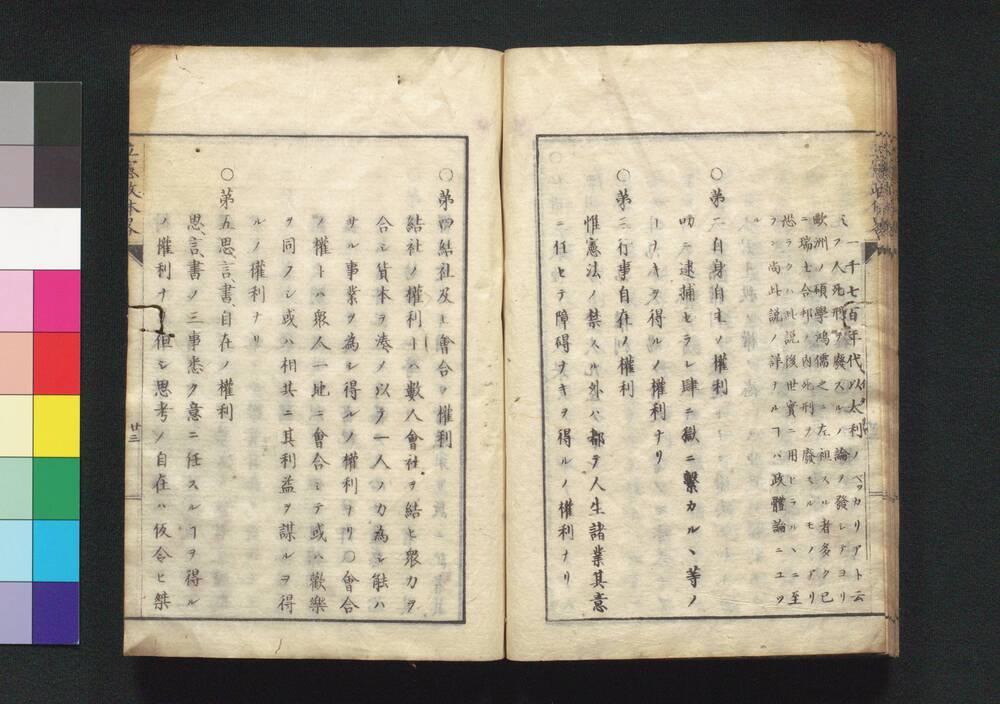 一千七百年代以太利ノベッカリアト云
フ人死刑ヲ廢スルノ論ヲ發シテヨリ
歐洲ノ碩學鴻儒之ニ左袒スル者多ク已
ニ瑞士合邦ノ内死刑ヲ廢セルモノアリ
恐ラクハ此說後世實ニ用ヒラルヽニ至
ラン尚此說ノ詳ナルヿハ政體論ニユヅ
ル
○第二自身自主ノ權利
叨ニ逮捕セラレ肆ニ獄ニ繫カルヽ等ノ
ヿナキヲ得ルノ權利ナリ
○第三行事自在ノ權利
惟憲法ノ禁スル外ハ都テ人生諸業其意
ニ任セテ障碍ナキヲ得ルノ權利ナリ
○第四結社及ヒ會合ノ權利
結社ノ權利トハ數人會社ヲ結ヒ眾力ヲ
合シ貨本ヲ湊メ以テ一人ノ力為シ能ハ
サル事業ヲ為シ得ルノ權利ナリ○會合
ノ權トハ眾人一地ニ會合シテ或ハ歡樂
ヲ同クシ或ハ相共ニ其利益ヲ謀ルヲ得
ルノ權利ナリ
○第五思、言、書、自在ノ權利
思、言、書ノ三事悉ク意ニ任スルヿヲ得ル
ノ權利ナリ但シ思考ノ自在ハ仮令ヒ桀
廿三